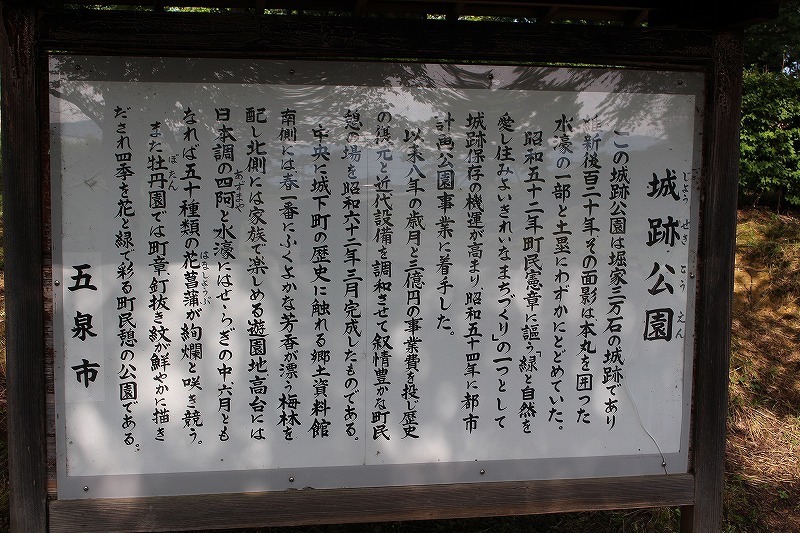 城跡公園
じょうせきこうえん
この城跡公園は堀家三万石の城跡であり
維新後百二十年その面影は本丸を囲った
水濠の一部と土塁にわずかにとどめていた。
昭和五十二年町民憲章に謳う「緑と自然を
愛し住みよいきれいなまちづくり」の一つとして
城跡保存の機運が高まり、昭和五十四年に都市
計画公園事業に着手した。
以来八年の歳月と三億円の事業費を投じ歴史
の復元と近代設備を調和させて叙情豊かな町民
憩の場を昭和六十二年三月完成したものである。
中央に城下町の歴史に触れる郷土資料館
南側には春一番にふくよかな芳香が漂う梅林を
配し北側には家族で楽しめる遊園地高台には
日本調の四阿と水濠にはせゝらぎの中六月とも
あずまや
なれば五十種類の花菖蒲が絢爛と咲き競う。
はなしょうぶ
また牡丹園では町章釘抜き紋が鮮やかに描き
ぼたん
だされ四季を花と緑で彩る町民憩の公園である。
五泉市